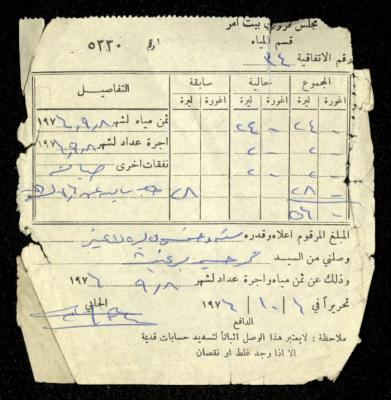 مجلس قروي بيت امر
قسم المياه
٥٣٣٠
رقم الاتفاقية ٣٤
التفاصيل سابقة حالية المجموع
ليرة اغورة ليرة اغورة ليرة اغورة
ثمن مياه لشهر ٩،٨ ١٩٧٦ ٢٤ - ٢٤ -
اجرة عداد لشهر ٩،٨ ١٩٧٦ ٢ - ٢ -
نفقات اخرى صيانة ٢ - ٢ -
٢٨ ٢٨ -
٥٦ -
المبلغ المرقوم اعلاه وقدره ستة وخمسون ليرة لا غير
وصلني من السيد
وذلك عن ثمن مياه واجرة عداد لشهر ٩،٨ ١٩٧٦
تحريراً في ٦ / ١٠ / ١٩٧٦ الجابي
الدافع
ملاحظة : لا يعتبر هذا الوصل اثباتاً لتسديد حسابات قديمة
الا اذا وجد غلط او نقصان